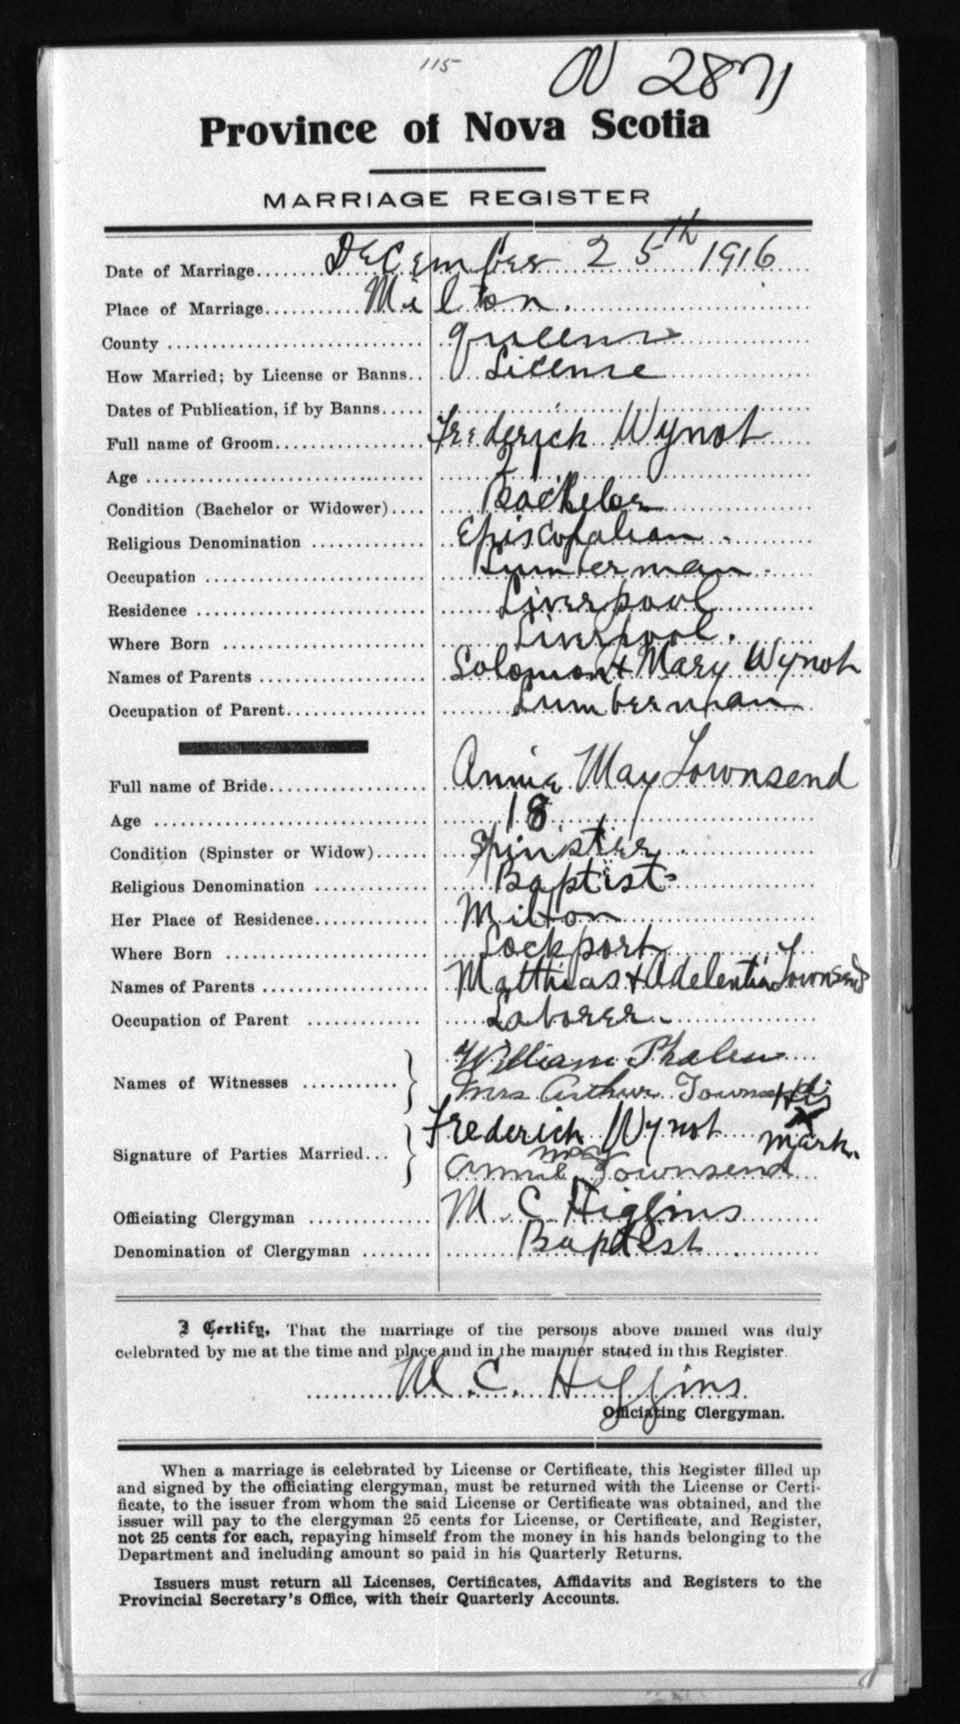 115
N 2871
Province of Nova Scotia
MARRIAGE REGISTER
Date of Marriage........December 25th 1916
Place of Marriage...........Milton.
County ............................Queens
How Married; by License or Banns..License
Dates of Publication, if by Banns.....
Full name of Groom................Frederick Wynot
Age ..............................
Condition (Bachelor or Widower)....Bachelor
Religious Denomination .............Episcopalian.
Occupation ........................Lumberman.
Residence .........................Liverpool
Where Born ......................Liverpool.
Names of Parents .................Solomon & Mary Wynot
Occupation of Parent................Lumberman
Full name of Bride..................Annie May Townsend
Age .................................18
Condition (Spinster or Widow)......Spinster
Religious Denomination .............Baptist
Her Place of Residence.............Milton
Where Born .......................Lockport
Names of Parents .................Matthias & Adelentia Townsend
Occupation of Parent .............Laborer.
Names of Witnesses ........... } William Phalen
Mrs Arthur Townsend
Signature of Parties Married... } Frederick Wynot His X mark.
Annie May Townsend
Officiating Clergyman .............M. C. Higgins
Denomination of Clergyman ........Baptist
I Certify, That the marriage of the persons above named was duly
celebrated by me at the time and place and in the manner stated in this Register.
M. C. Higgins
Officiating Clergyman.
When a marriage is celebrated by License or Certificate, this Register filled up
and signed by the officiating clergyman, must be returned with the License or Certi-
ficate, to the issuer from whom the said License or Certificate was obtained, and the
issuer will pay to the clergyman 25 cents for License, or Certificate, and Register,
not 25 cents for each, repaying himself from the money in his hands belonging to the
Department and including amount so paid in his Quarterly Returns.
Issuers must return all Licenses, Certificates, Affidavits and Registers to the
Provincial Secretary's Office, with their Quarterly Accounts.